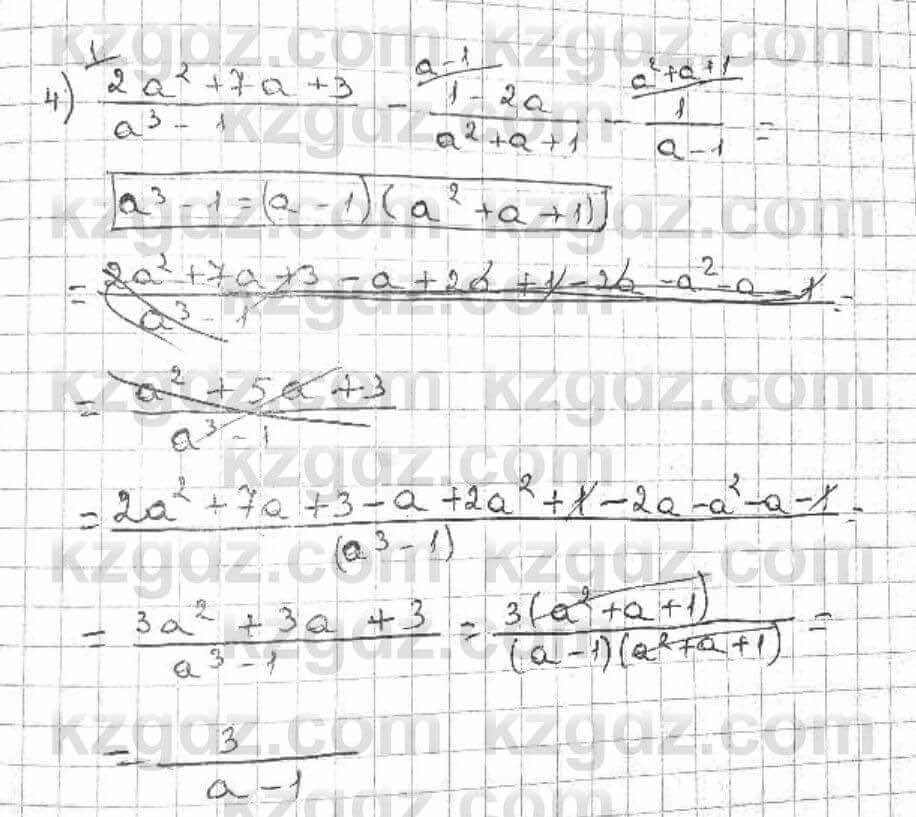 kzgdz.com kzgdz.com
1 a-1 a²+a+1
4) (2a² + 7a + 3)/(a³ - 1) - (1 - 2a)/(a² + a + 1) - 1/(a - 1) =
kzgdz.com
a³ - 1 = (a - 1)(a² + a + 1)
kzgdz.com kzgdz.com
= (2a² + 7a + 3 - a + 2a + 1 - 2a - a² - a - 1)/(a³ - 1) =
kzgdz.com
kzgdz.com kzgdz.com
= (a² + 5a + 3)/(a³ - 1)
kzgdz.com
= (2a² + 7a + 3 - a + 2a² + 1 - 2a - a² - a - 1)/(a³ - 1) =
kzgdz.com kzgdz.com
= (3a² + 3a + 3)/(a³ - 1) = 3(a² + a + 1)/((a - 1)(a² + a + 1)) =
kzgdz.com
kzgdz.com kzgdz.com
= 3/(a - 1)
kzgdz.com